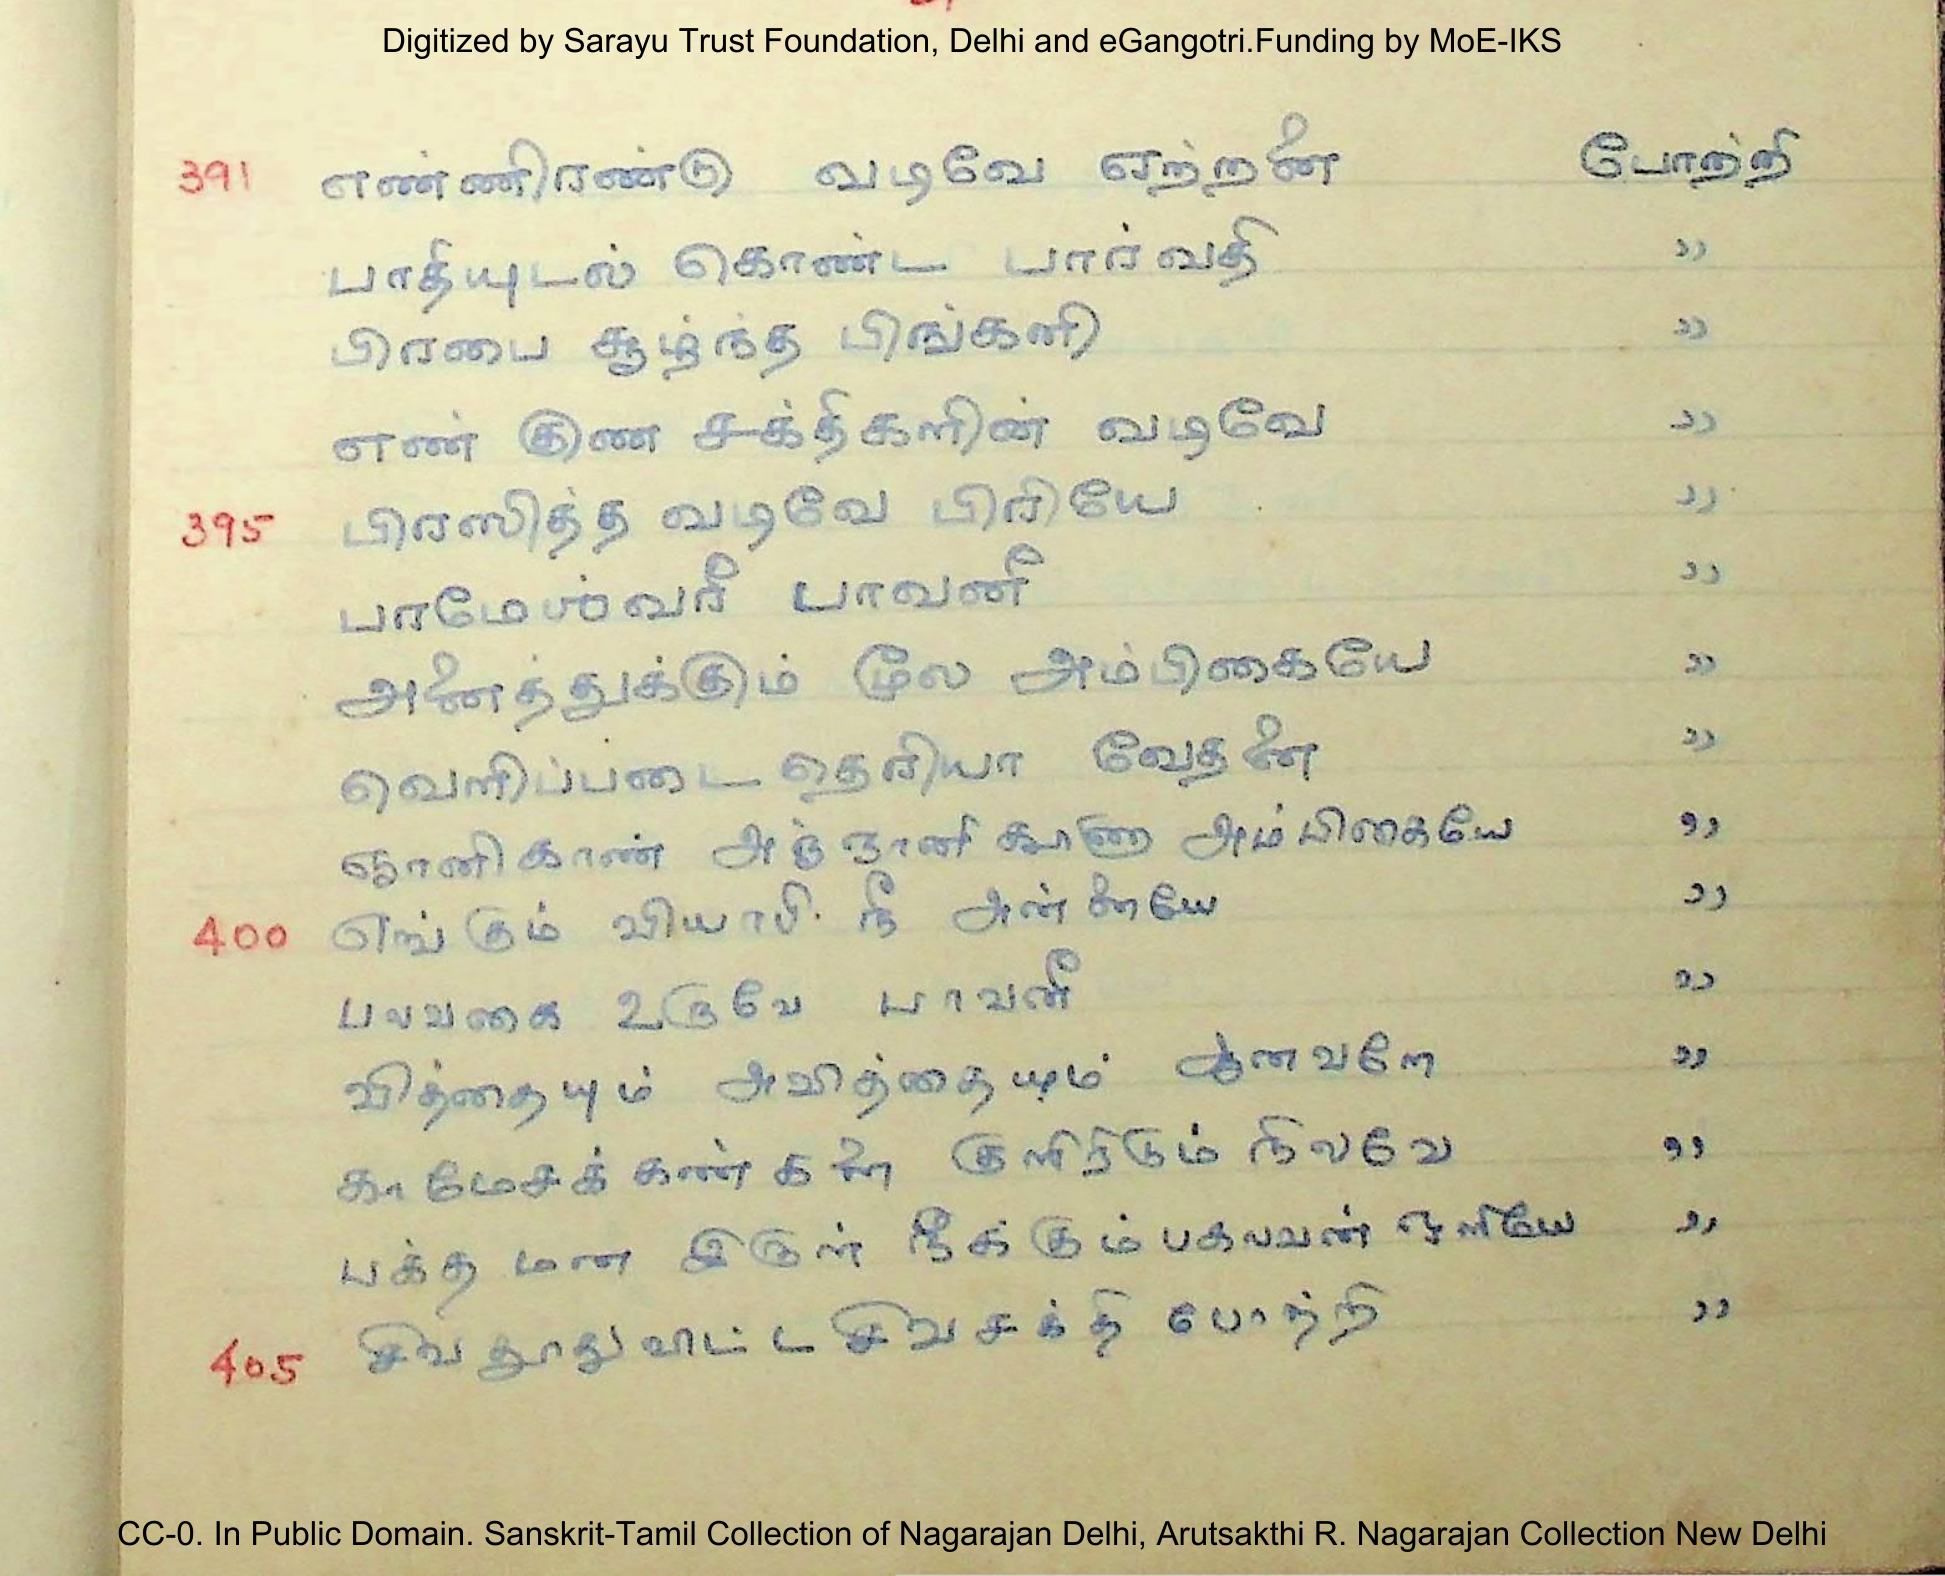 Digitized by Sarayu Trust Foundation, Delhi and eGangotri.Funding by MoE-IKS
391 எண்ணிரண்டு வடிவே ஏற்றனை போற்றி
பாதியுடல் கொண்ட பார்வதி ,,
பிரபை சூழ்ந்த பிங்கனி ,,
எண் குண சக்திகளின் வடிவே ,,
395 பிரஸித்த வடிவே பிரியே ,,
பரமேஶ்வரீ பாவனீ ,,
அனைத்துக்கும் மூல அம்பிகையே ,,
வெளிப்படை தெரியா வேதனை ,,
ஞானிகாண் அஞ்ஞானி காணா அம்பிகையே ,,
400 எங்கும் வியாபி நீ அன்னையே ,,
பலவகை உருவே பாவனீ ,,
வித்தையும் அவித்தையும் ஆனவளே ,,
காமேசக் கண்களை குளிர்டும் நிலவே ,,
பக்த மன இருள் நீக்கும் பகலவன் ஒளியே ,,
405 சிவ தூதுவிட்ட சிவசக்தி போற்றி ,,
CC-0. In Public Domain. Sanskrit-Tamil Collection of Nagarajan Delhi, Arutsakthi R. Nagarajan Collection New Delhi